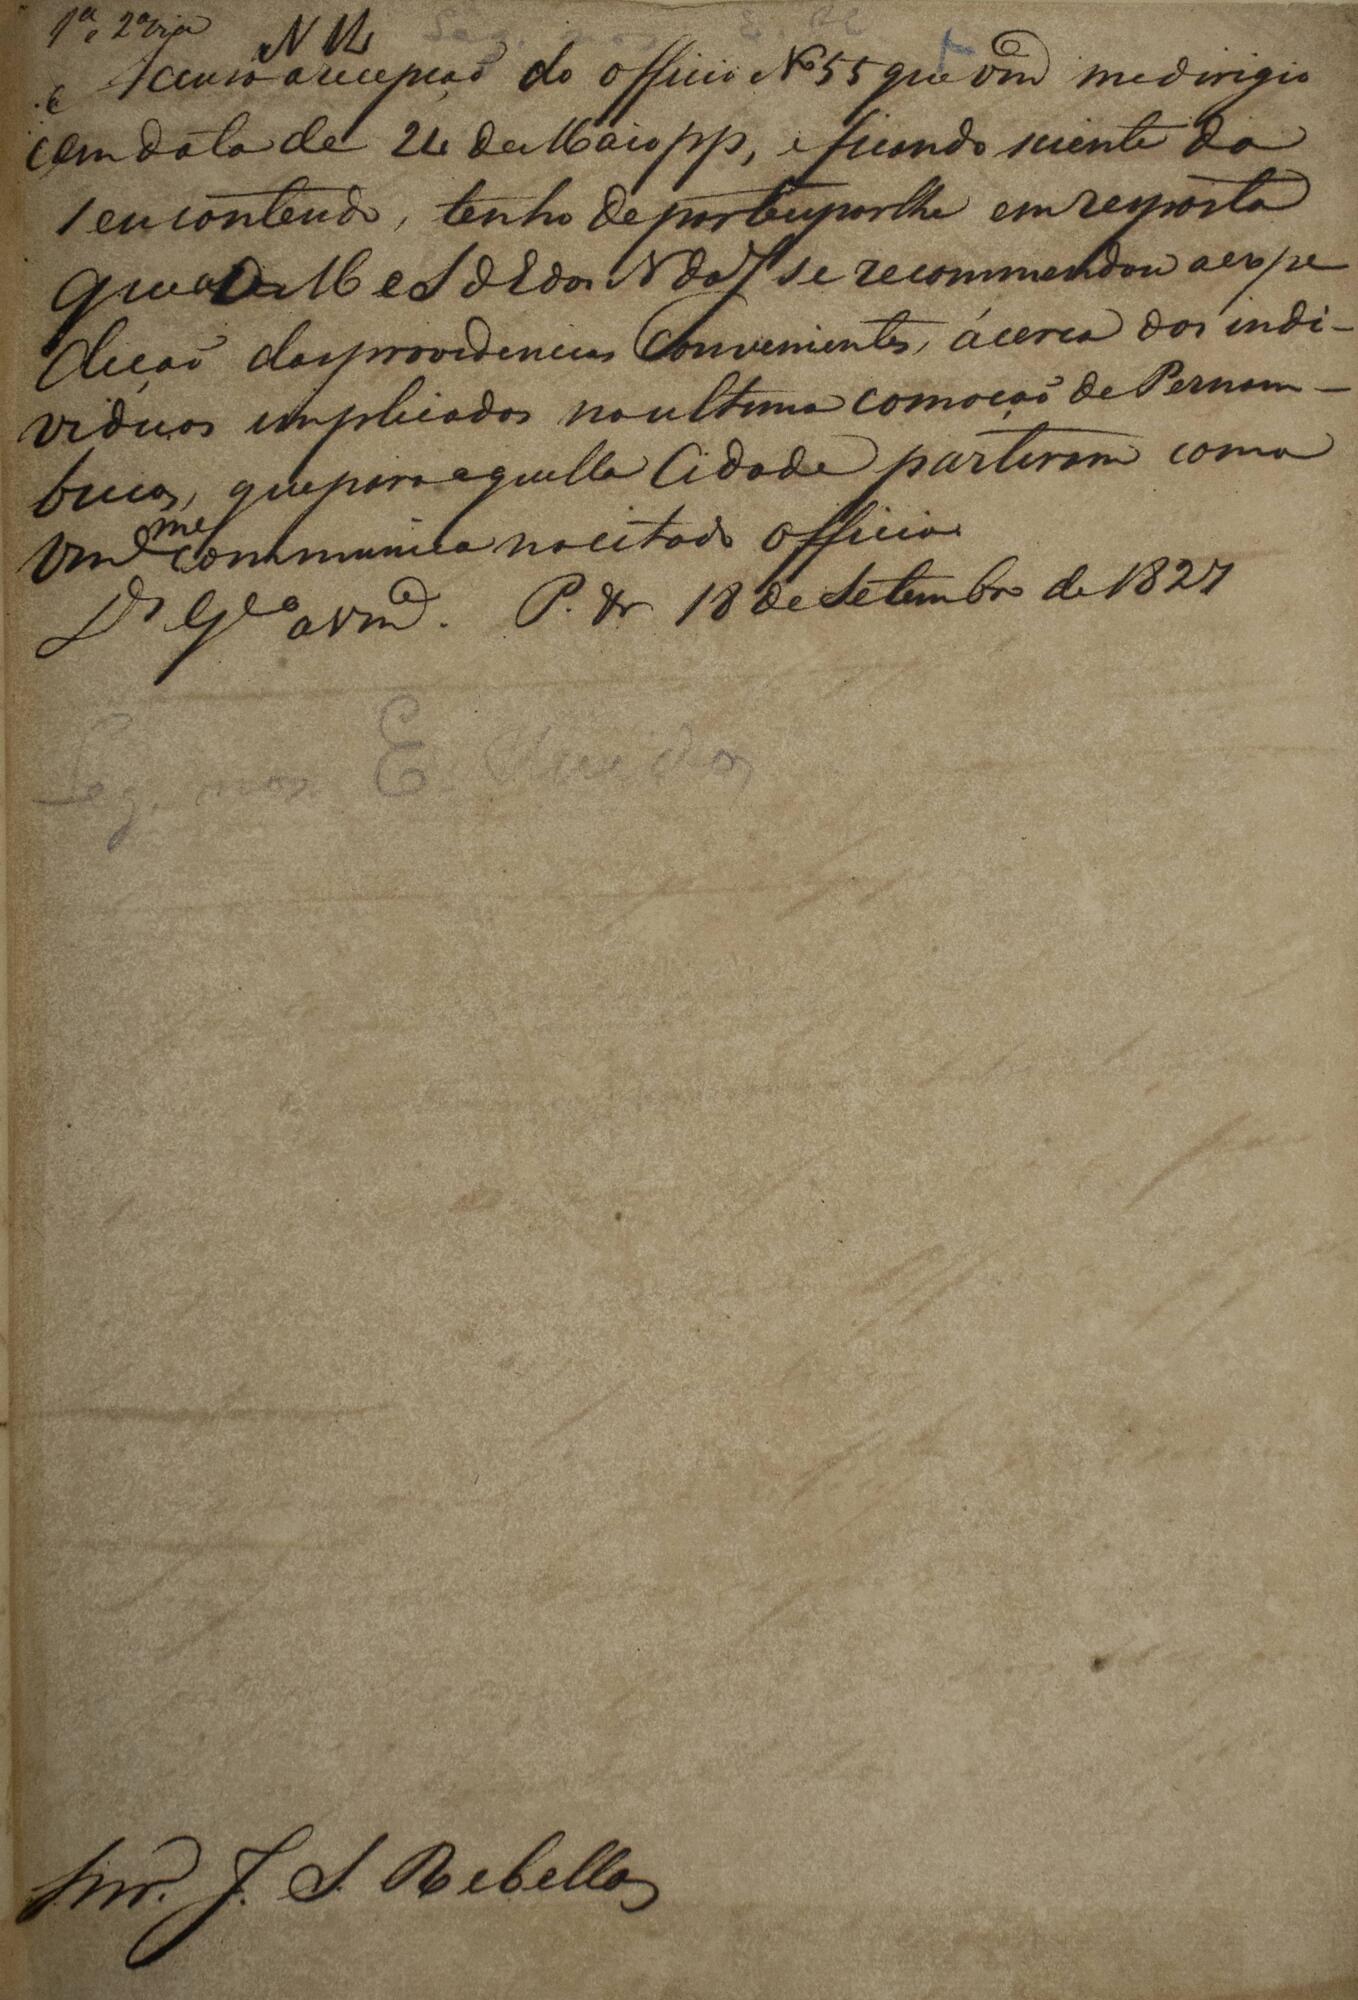 1ª e 2ª via
N 12
Accuso a recepção do officio Nº 55 que Vmce me dirigio
em data de 24 de Maio pp, e ficando sciente do
seu conteudo, tenho de participarlhe em resposta
que ao M e S d E dos N da J se recommendou a expe
dição das providencias convenientes, ácerca dos indi-
viduos implicados na ultima comoção de Pernam-
buco, que para aquella Cidade partiram como
Vmce me communica no citado officio.
Ds Gde a Vmce. P. &c 18 de Setembro de 1827
Seg. nos E. Unidos
Snr. J. S. Rebello